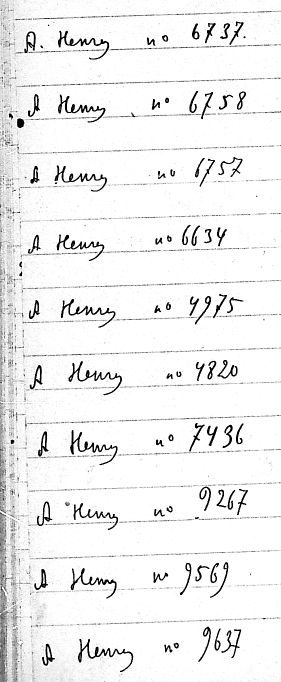 A. Henry no 6737.
A Henry no 6758
A Henry no 6757
A Henry no 6634
A Henry no 4975
A Henry no 4820
A Henry no 7436
A Henry no 9267
A Henry no 9569
A Henry no 9637